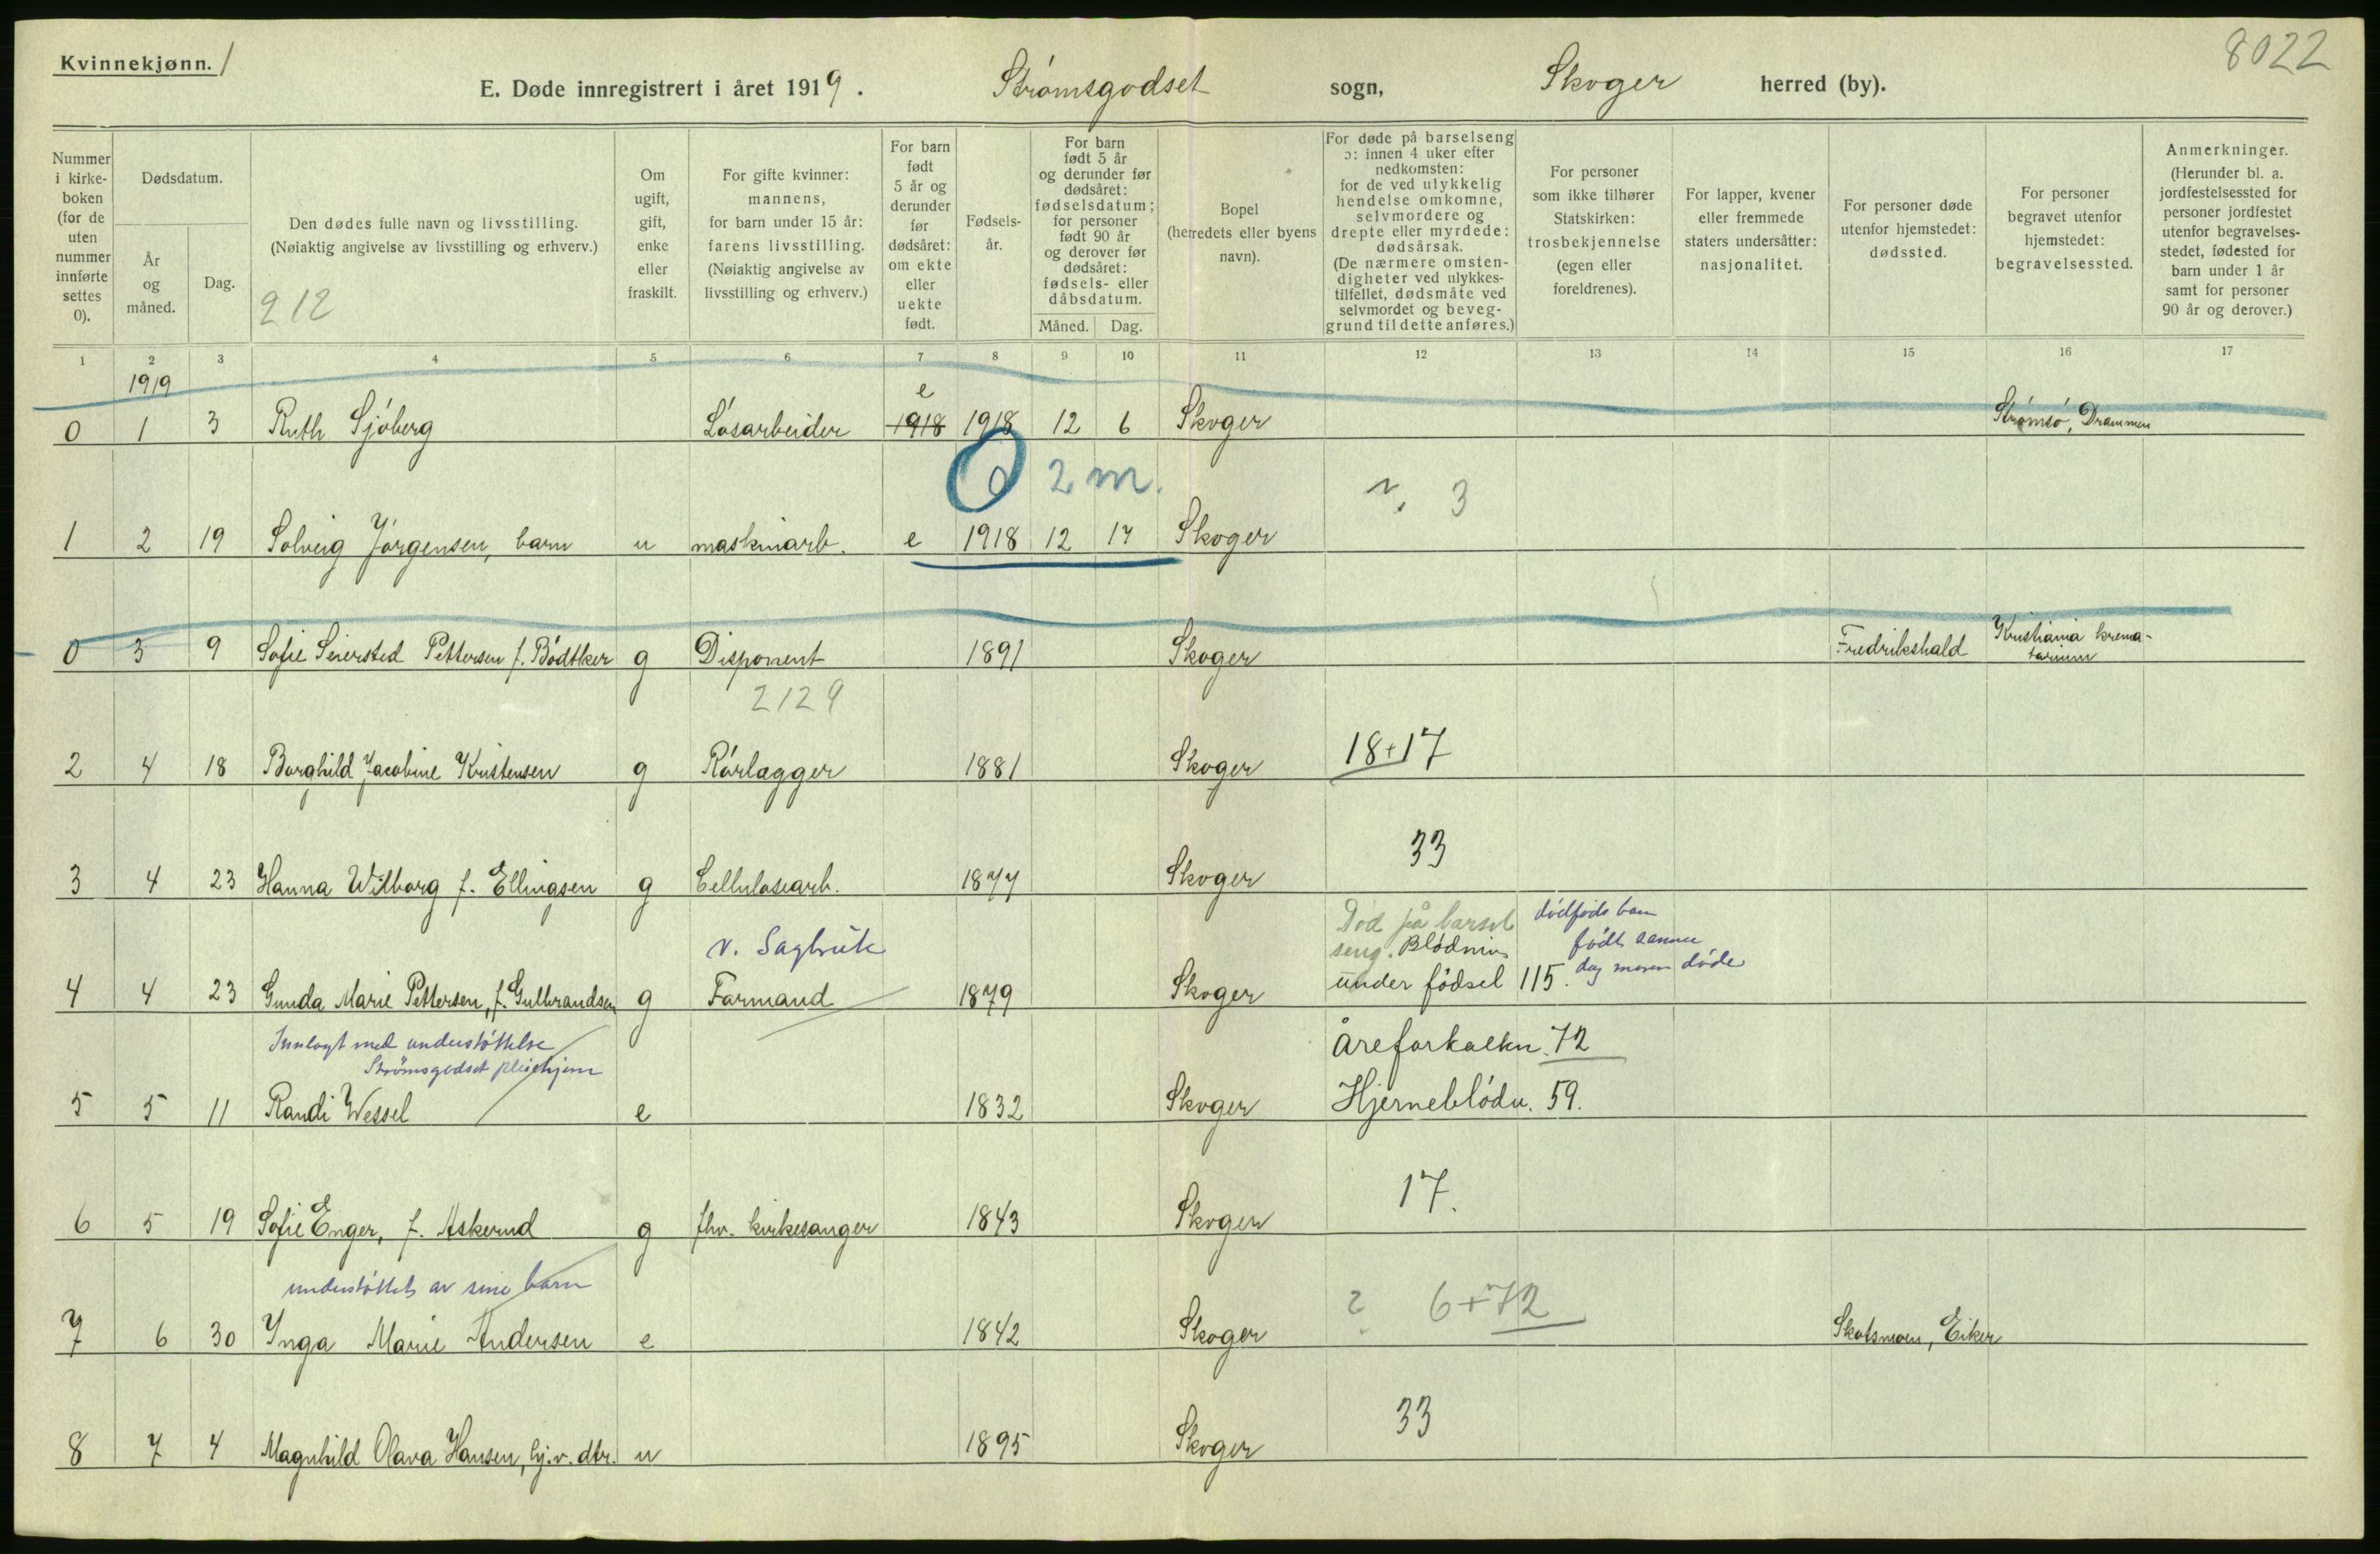 Kvinnekjønn. 1
8022
E. Døde innregistrert i året 1919. Strømsgodset sogn, Skoger herred (by).
Nummer
i kirke-
boken
(for de
uten
nummer
innførte
settes
0).
Dødsdatum.
År
og
måned.
Dag.
Den dødes fulle navn og livsstilling.
(Nøiaktig angivelse av livsstilling og erhverv.)
212
Om
ugift,
gift,
enke
eller
fraskilt.
For gifte kvinner:
mannens,
for barn under 15 år:
farens livsstilling.
(Nøiaktig angivelse av
livsstilling og erhverv.)
For barn
født
5 år og
derunder
før
dødsåret:
om ekte
eller
uekte
født.
Fødsels-
år.
For barn
født 5 år
og derunder før
dødsåret:
fødselsdatum;
for personer
født 90 år
og derover før
dødsåret:
fødsels- eller
dåbsdatum.
Måned. Dag.
Bopel
(herredets eller byens
navn).
For døde på barselseng
ɔ: innen 4 uker efter
nedkomsten:
for de ved ulykkelig
hendelse omkomne,
selvmordere og
drepte eller myrdede:
dødsårsak.
(De nærmere omsten-
digheter ved ulykkes-
tilfellet, dødsmåte ved
selvmordet og beveg-
grund til dette anføres.)
For personer
som ikke tilhører
Statskirken:
trosbekjennelse
(egen eller
foreldrenes).
For lapper, kvener
eller fremmede
staters undersåtter:
nasjonalitet.
For personer døde
utenfor hjemstedet:
dødssted.
For personer
begravet utenfor
hjemstedet:
begravelsessted.
Anmerkninger.
(Herunder bl. a.
jordfestelsessted for
personer jordfestet
utenfor begravelses-
stedet, fødested for
barn under 1 år
samt for personer
90 år og derover.)
1 2 3 4 5 6 7 8 9 10 11 12 13 14 15 16 17
1919
e
0 1 3 Ruth Sjöberg Løsarbeider 1918 1918 12 6 Skoger Strømsø, Drammen
0 2 m. 3
1 2 19 Solveig Jørgensen, barn u maskinarb. e 1918 12 17 Skoger
0 3 9 Sofie Seiersted Pettersen f. Bödtker g Disponent 1891 Skoger Fredrikshald Kristiania krema-
torium
2129
18+17
2 4 18 Borghild Jacobine Kristensen g Rørlægger 1881 Skoger
33
3 4 23 Hanna Wilborg f. Ellingsen g Cellulosearb. 1877 Skoger
Død på barsel dødfødt barn
v. Sagbruk
seng. Blødning født samme
dag moren døde
4 4 23 Gunda Marie Pettersen, f. Gulbrandsen g Formand 1879 Skoger under fødsel 115.
Innlagt med understøttelse
Strømsgodset pleiehjem
Åreforkalkn. 72
5 5 11 Randi Wessel e 1832 Skoger Hjerneblødn. 59.
17.
6 5 19 Sofie Enger, f. Askerud g fhv. kirkesanger 1843 Skoger
understøttet av sine barn
? 6+72
7 6 30 Inga Marie Andersen e 1842 Skoger Skotsmoen, Eiker
33
8 7 4 Magnhild Olava Hansen, hj.v. dtr. u 1895 Skoger